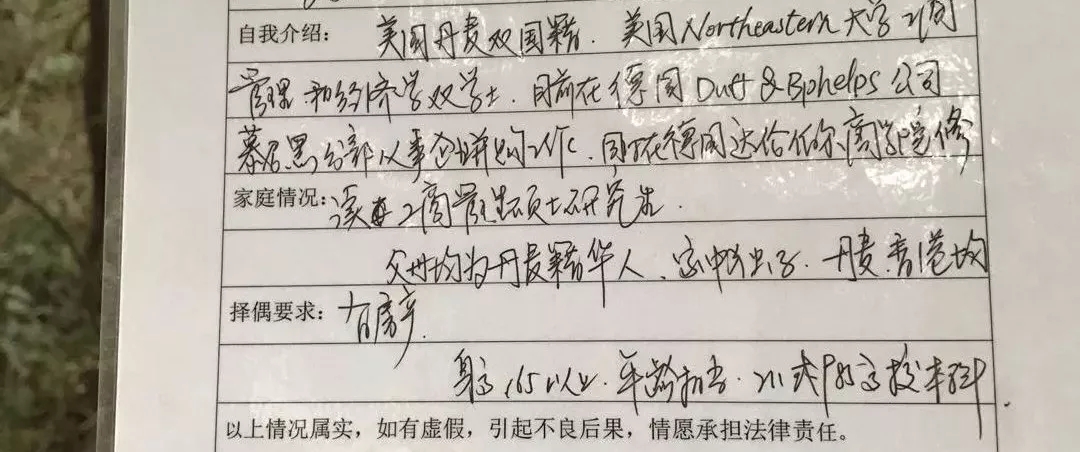 自我介绍: 美国丹麦双国籍. 美国Northeastern大学工商
管理和经济学双学士. 目前在德国Duff & Phelps公司
慕尼黑分部从事企业并购工作, 同时在德国达哈伯尔商学院修
家庭情况: 读工商管理硕士研究生.
父母均为丹麦籍华人, 家中独子. 丹麦.香港均
择偶要求: 有房产.
身高165以上. 年龄相当. 211或985高校本科
以上情况属实，如有虚假，引起不良后果，情愿承担法律责任。